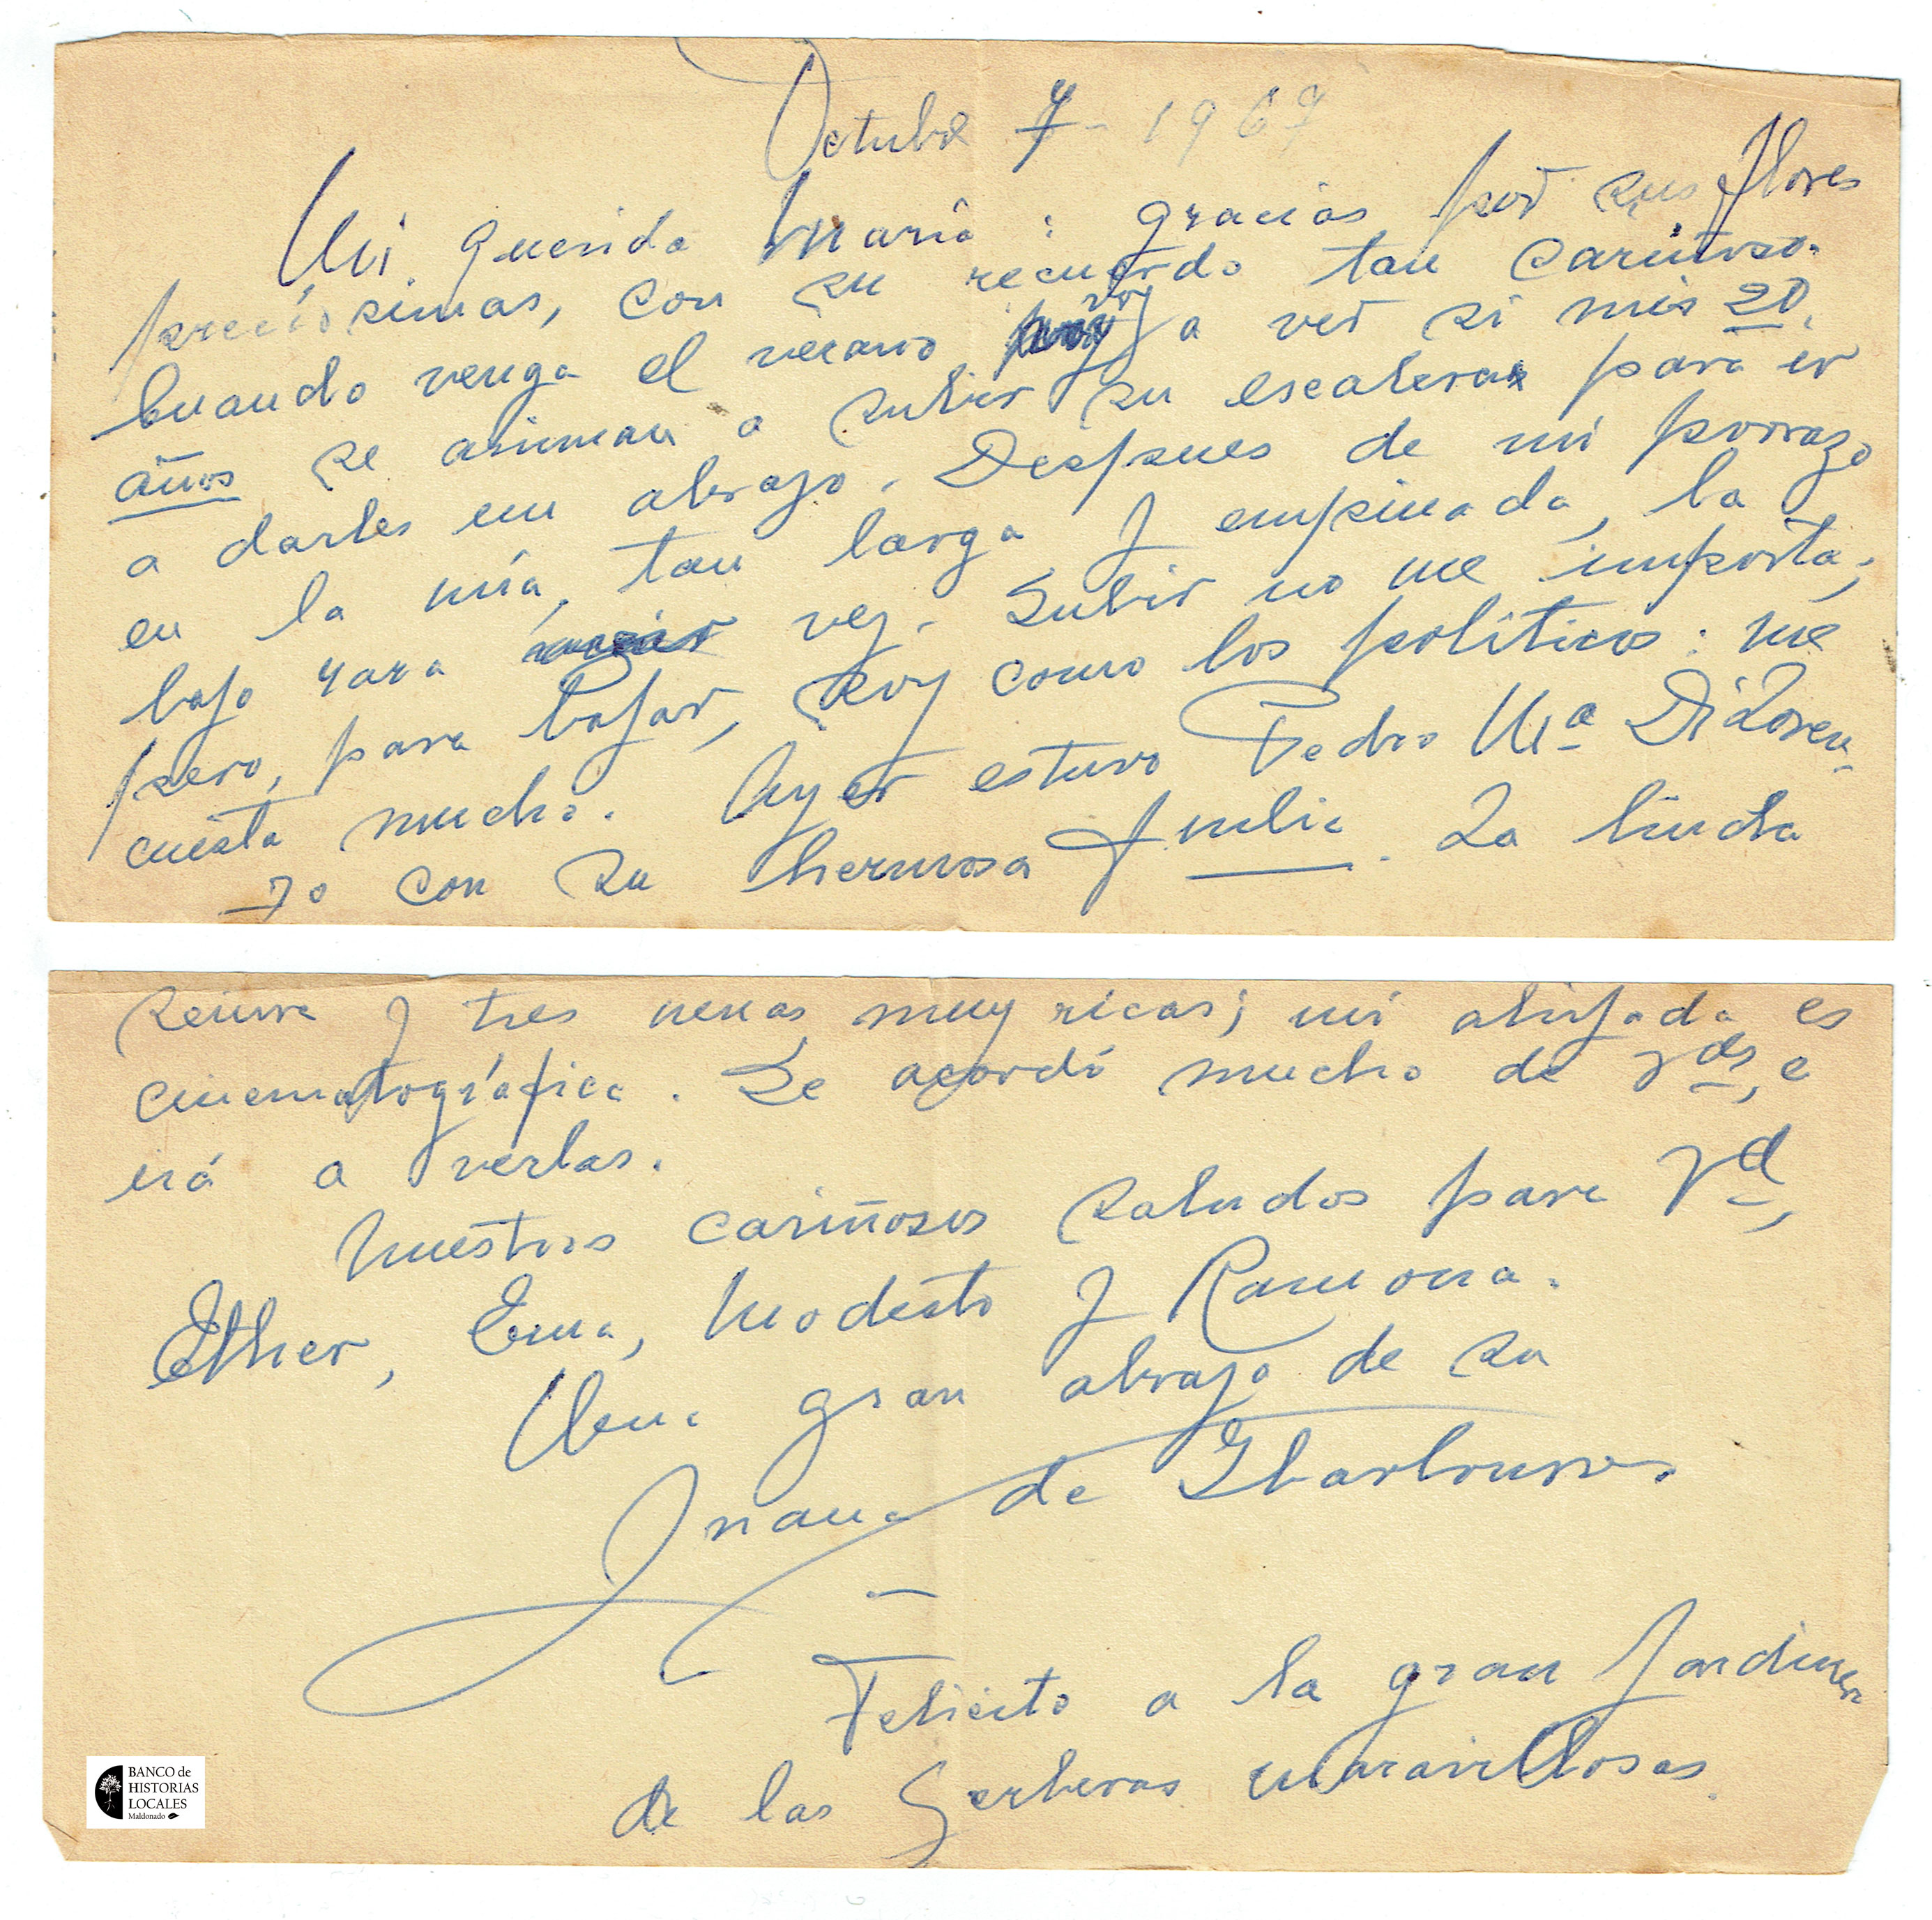 Octubre 7 - 1967
Mi querida María: gracias por sus flores
preciosísimas, con su recuerdo tan cariñoso.
Cuando venga el verano voy a ver si mis 20
años se animan a subir su escalera para ir
a darles un abrazo. Despues de mi porrazo
en la mía, tan larga y empinada, la
bajo rara vez. Subir no me importa;
pero, para bajar, soy como los políticos: me
cuesta mucho. Ayer estuvo Pedro Mª Di Loren-
zo con su hermosa Julia. La lindra
señora y tres nenas muy ricas; mi ahijada es
cinematográfica. Se acordó mucho de Vds, e
irá a verlas.
Nuestros cariñosos saludos para Vd,
Ether, Ema, Modesto y Ramona.
Un gran abrazo de su
Juana de Ibarbourou.
—
Felicito a la gran Jardinera
de las Gerberas maravillosas.
BANCO de
HISTORIAS
LOCALES
Maldonado